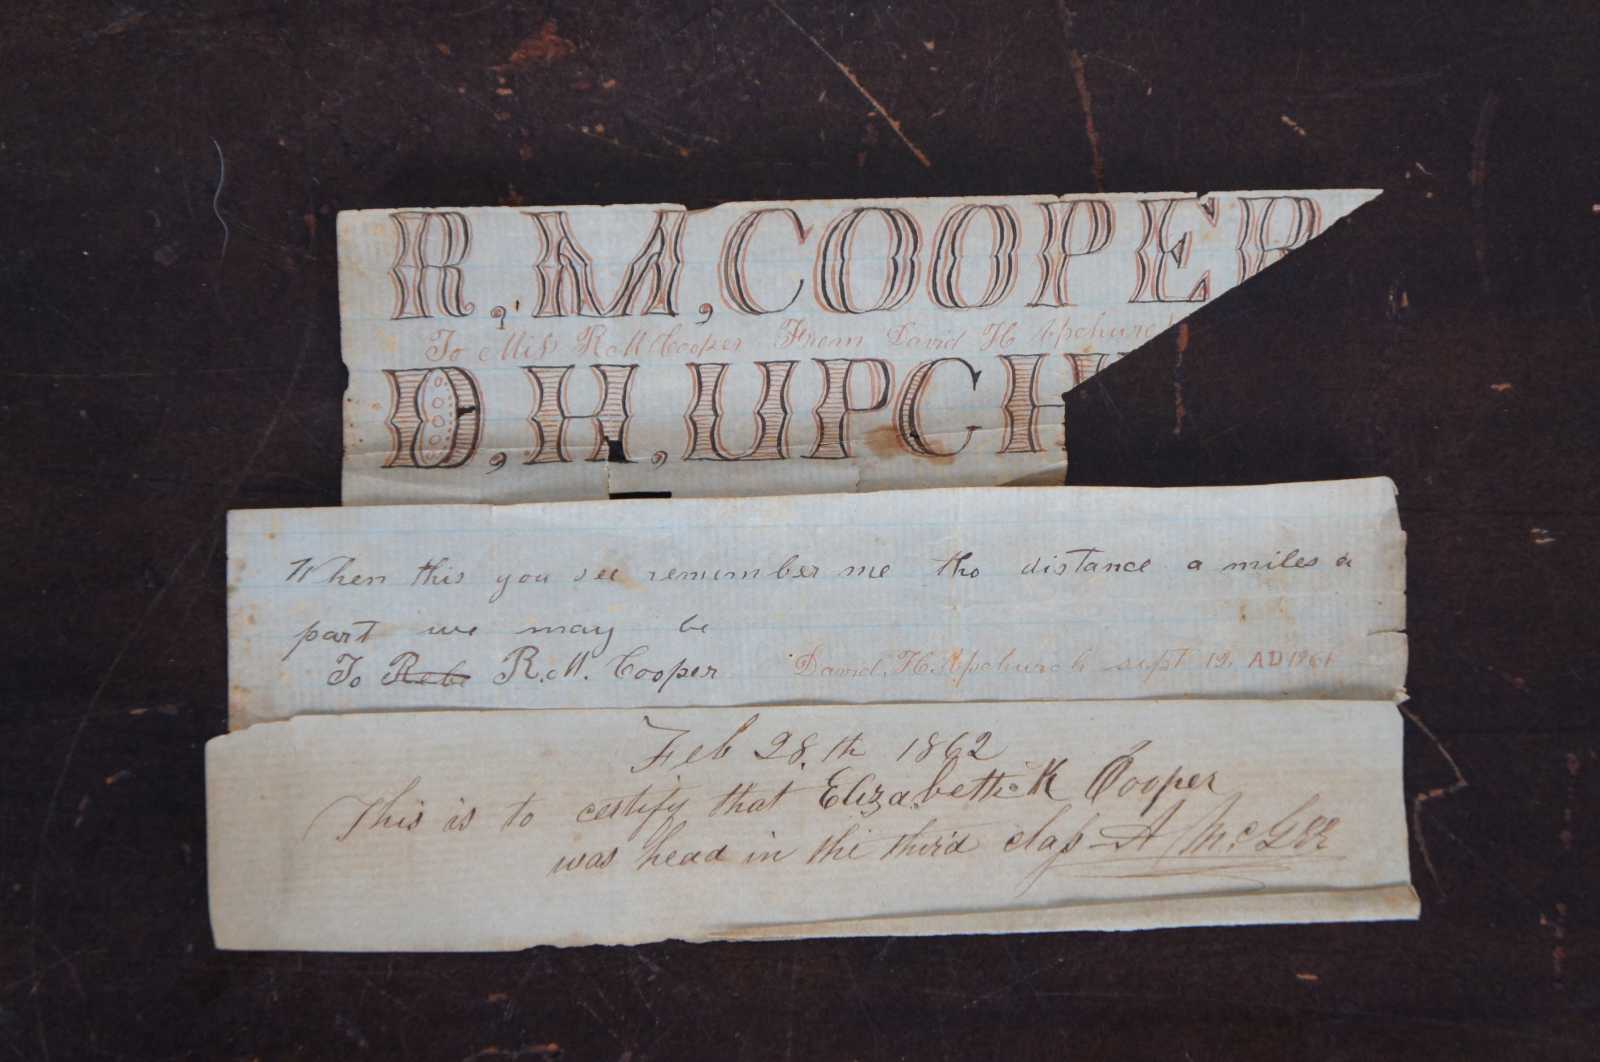 R, M, COOPER
To Miss R M Cooper From David H Upchurc
D, H, UPCH
When this you see remember me tho distance a miles a
part we may be
To Rebe R. M. Cooper David. H. Upchurch sept 12. AD 1861
Feb 28.th 1862
This is to certify that Elizabeth K Cooper
was head in the third class A McGee